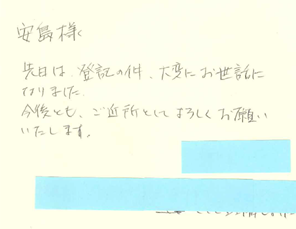 安島様
先日は、登記の件、大変にお世話に
なりました.
今後とも、ご近所としてよろしくお願い
いたします。